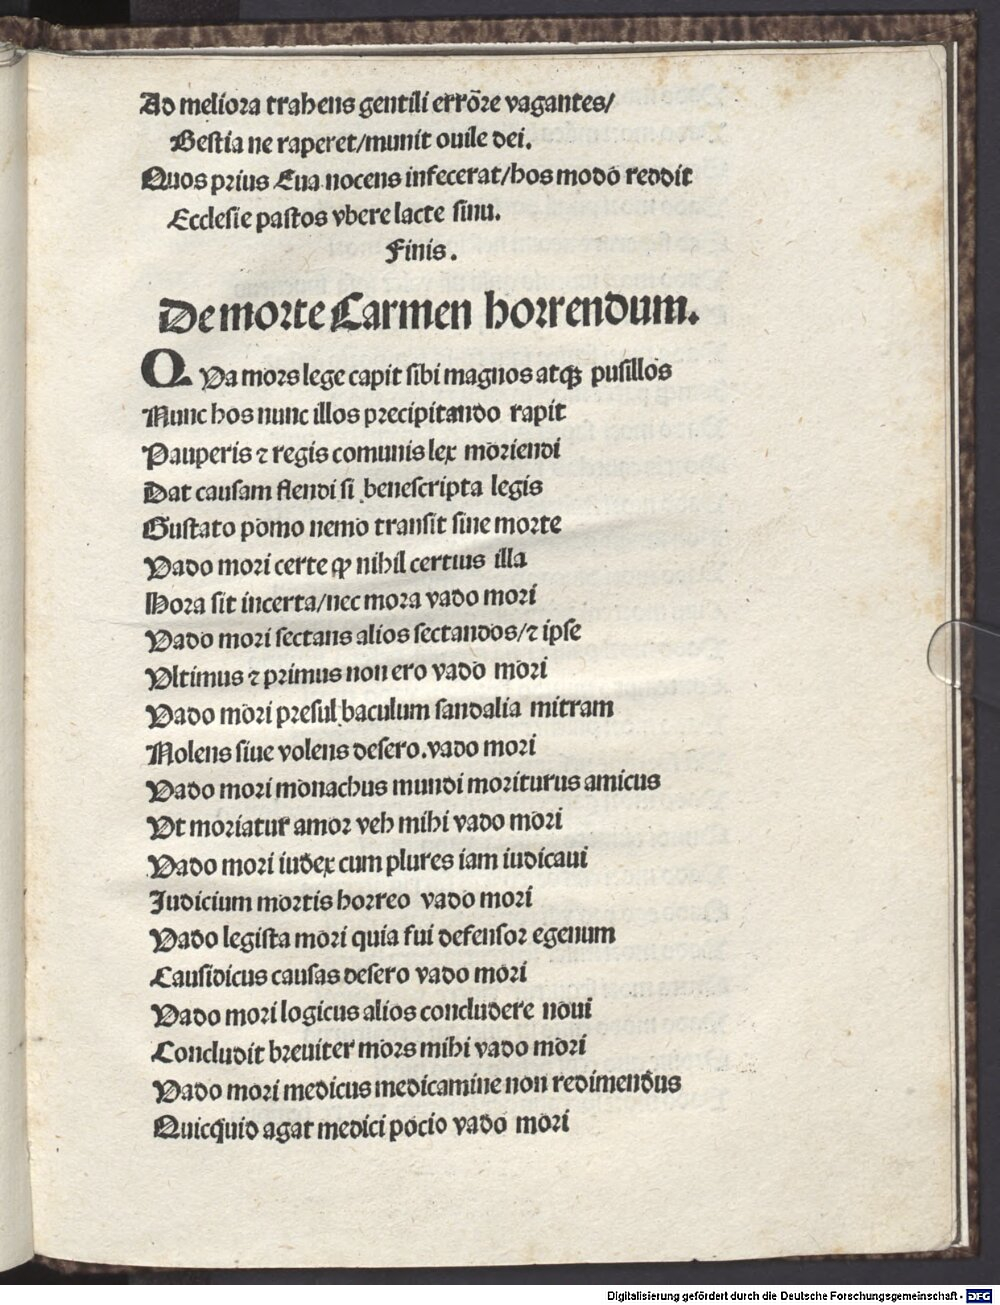 Ad meliora trahens gentili errõre vagantes/
Bestia ne raperet/munit ouile dei.
Quos prius Eua nocens infecerat/hos modo reddit
Ecclesie pastos vbere lacte sinu.
Finis.
De morte Carmen horrendum.
QVa mors lege capit sibi magnos atqꝫ pusillos
Nunc hos nunc illos precipitando rapit
Pauperis ⁊ regis comunis lex moriendi
Dat causam flendi si bene scripta legis
Gustato pomo nemo transit sine morte
Vado mori certe ꝙ nihil certius illa
Hora sit incerta/nec mora vado mori
Vado mori sectans alios sectandos/⁊ ipse
Vltimus ⁊ primus non ero vado mori
Vado mori presul baculum sandalia mitram
Nolens siue volens desero.vado mori
Vado mori monachus mundi moriturus amicus
Vt moriatur amor veh mihi vado mori
Vado mori iudex cum plures iam iudicaui
Judicium mortis horreo vado mori
Vado legista mori quia fui defensor egenum
Causidicus causas desero vado mori
Vado mori logicus alios concludere noui
Concludit breuiter mors mihi vado mori
Vado mori medicus medicamine non redimendus
Quicquid agat medici pocio vado mori
Digitalisierung gefördert durch die Deutsche Forschungsgemeinschaft - DFG